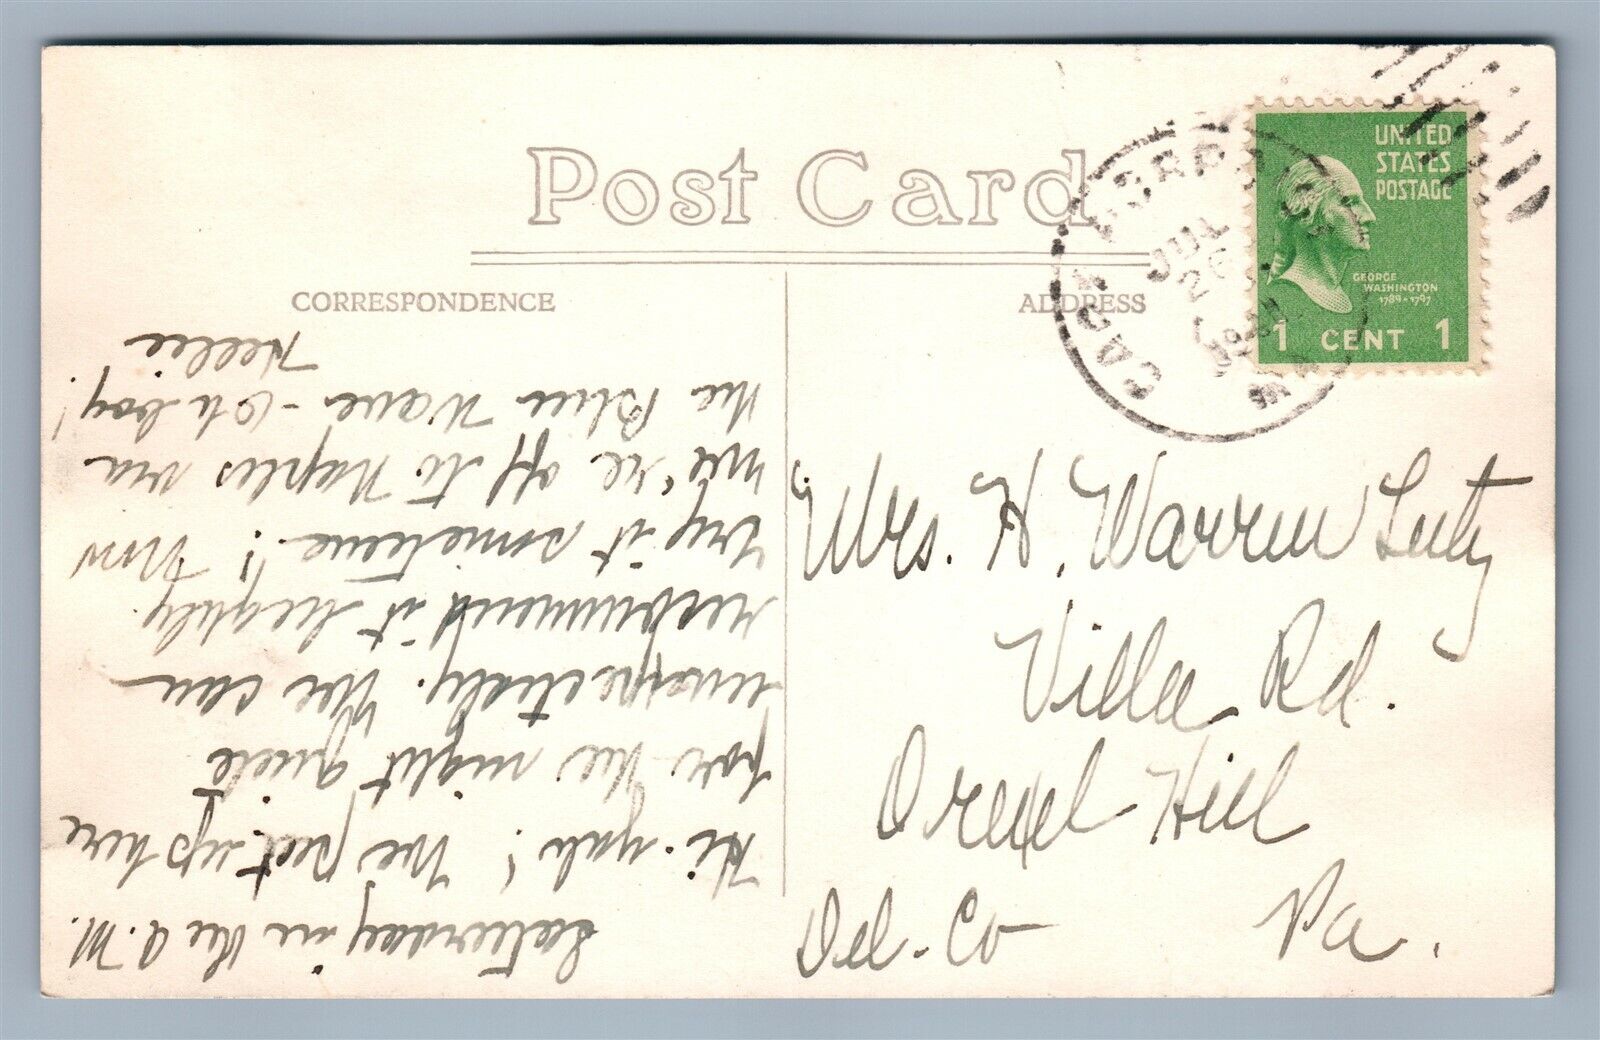 Post Card
CORRESPONDENCE
ADDRESS
UNITED
STATES
POSTAGE
GEORGE
WASHINGTON
1789-1797
1 CENT 1
JUL
26
Saturday in the A.M.
Hi-yah! We put up here
for the night quite
unexpectedly. We can
recommend it highly.
Try it sometime!! Now
we're off to Naples via
the Blue Wave - Oh boy!
Mrs. H. Warren Luty
Villa Rd.
Drexel Hill
Del. Co Pa.